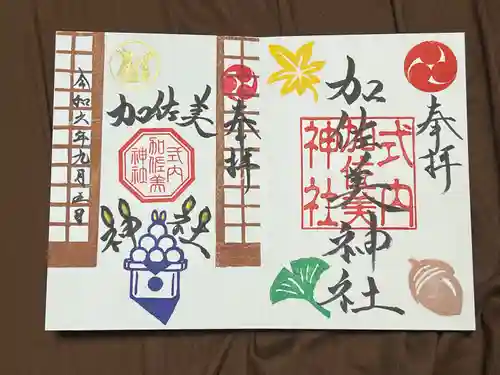 奉拝
加佐美神社
式内
加佐美
神社
奉拝
加佐美
神社
式内
加佐美
神社
令和六年九月